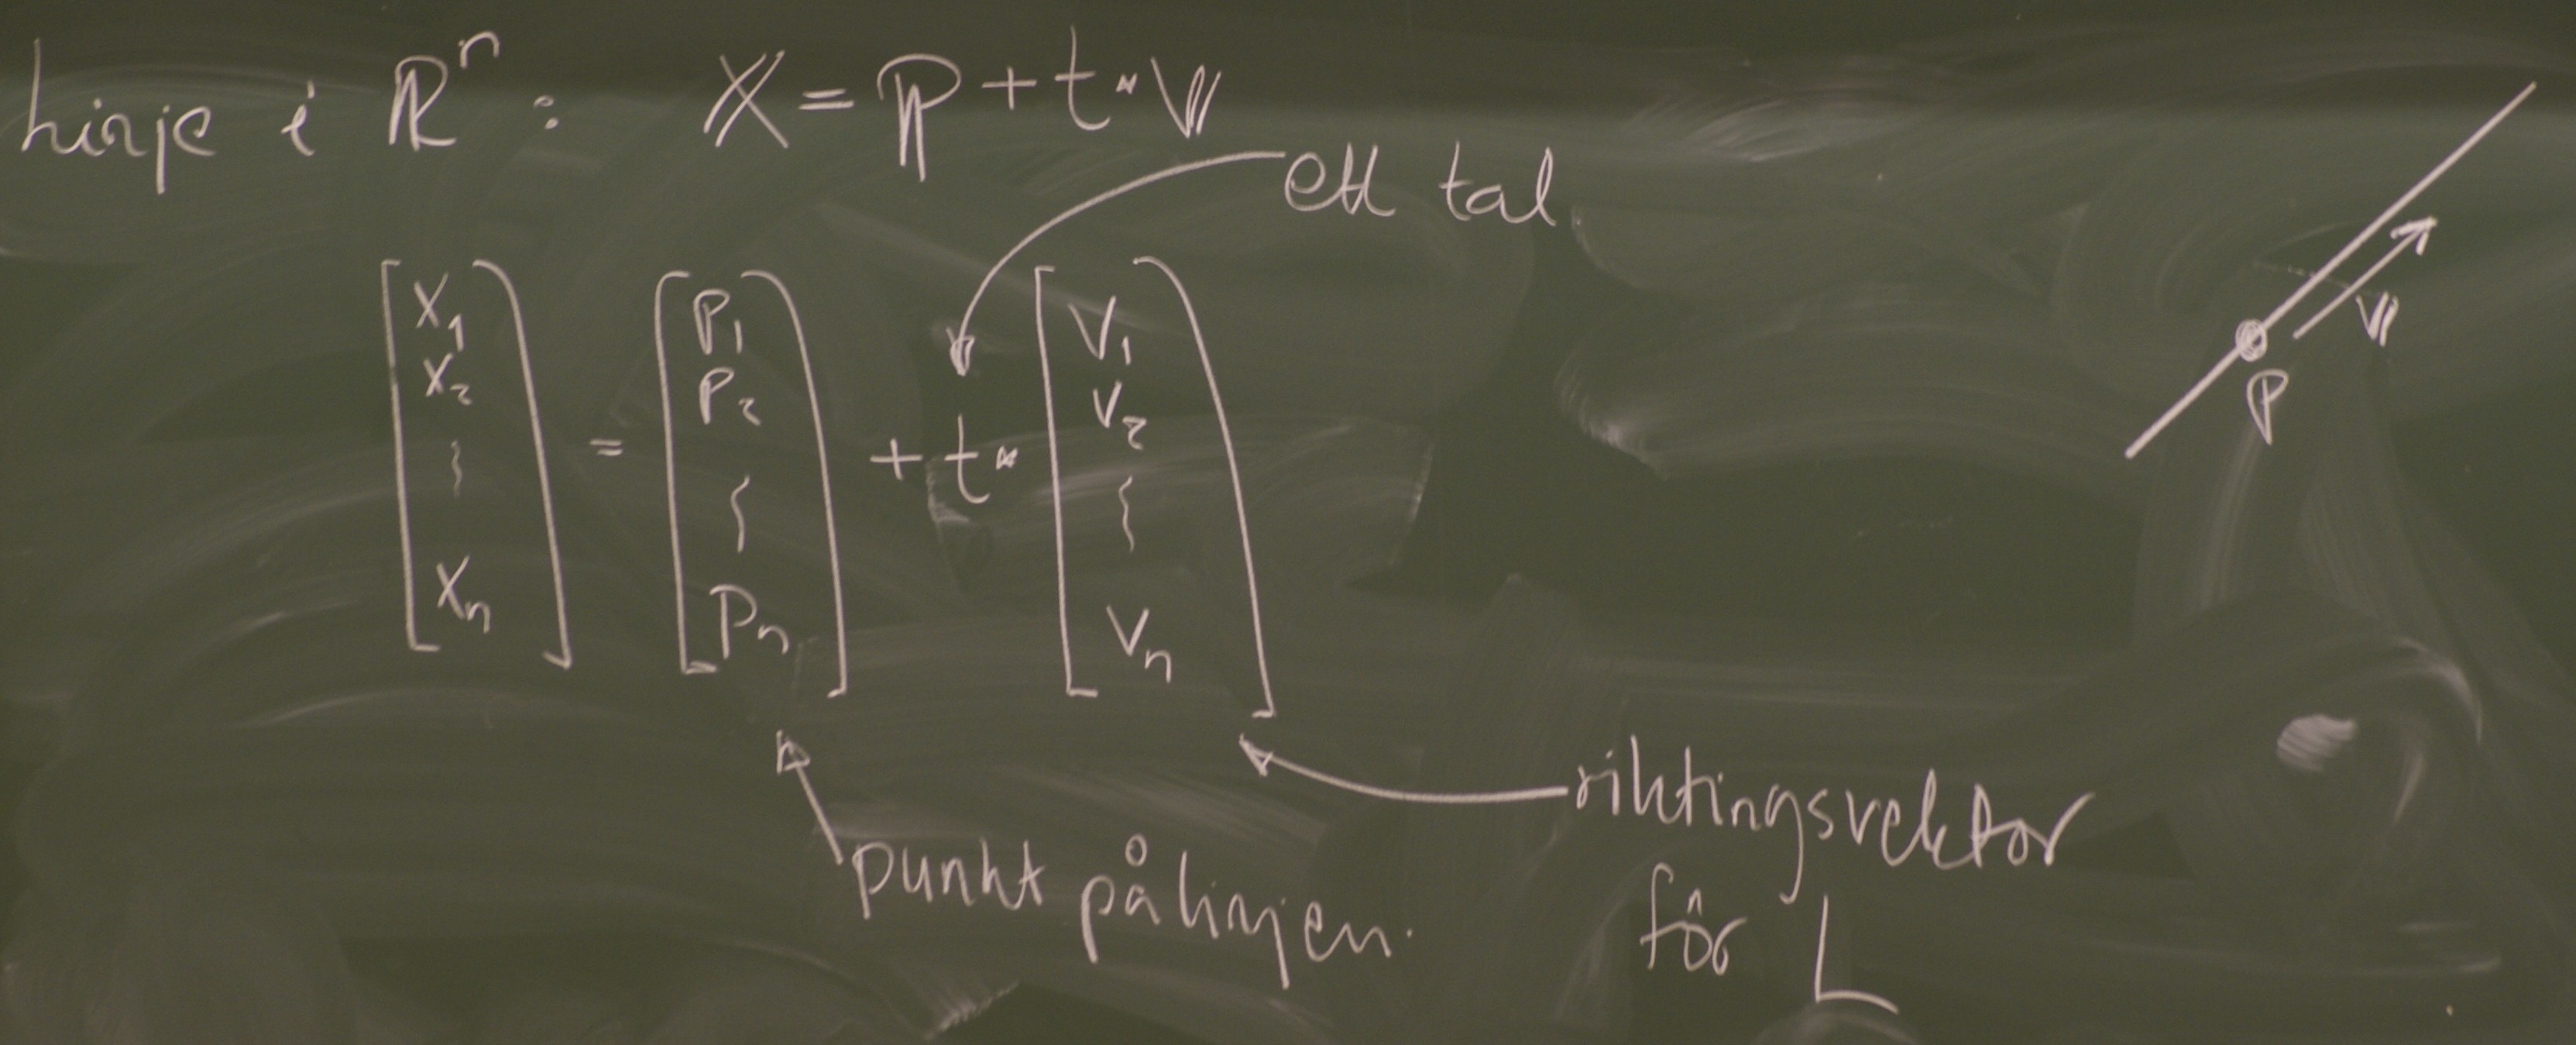 Linje i ℝⁿ: 𝕏 = ℙ + t·𝕍
ett tal
[x₁ x₂ ⋮ xₙ] = [p₁ p₂ ⋮ pₙ] + t· [v₁ v₂ ⋮ vₙ]
𝕍
ℙ
punkt på linjen.
riktingsvektor
för L